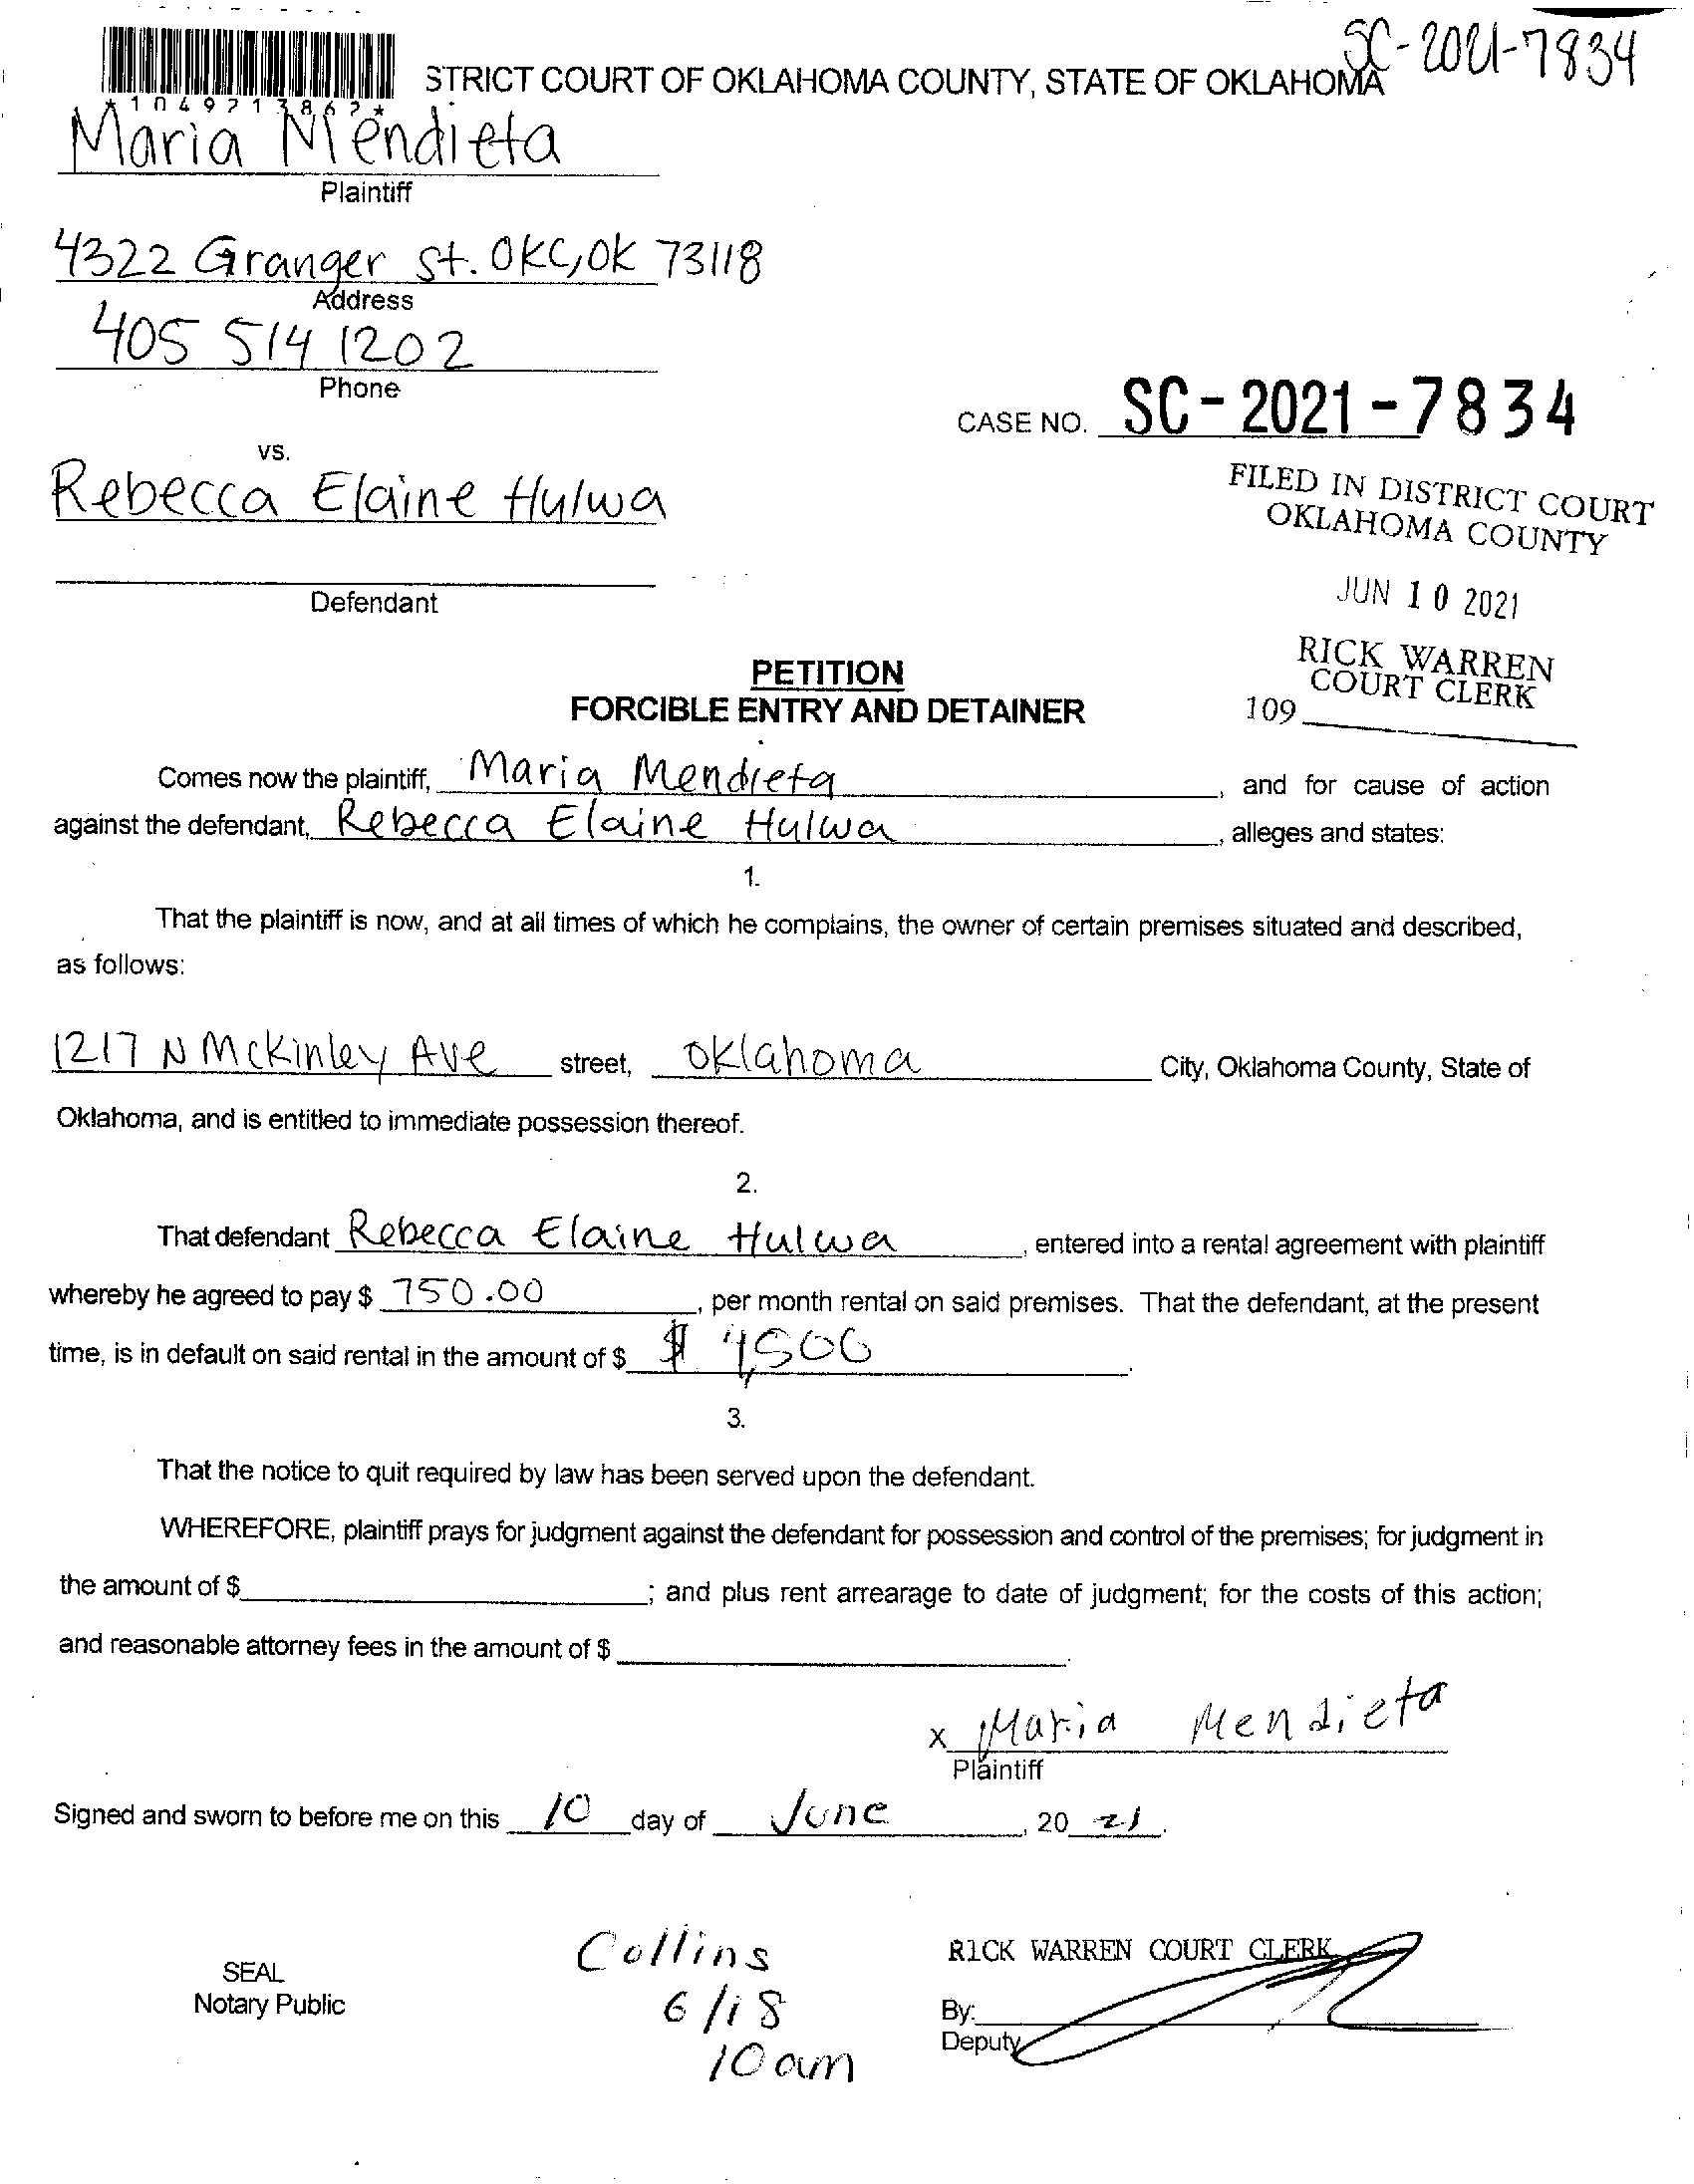 SC-2021-7834
STRICT COURT OF OKLAHOMA COUNTY, STATE OF OKLAHOMA
Maria Mendieta
Plaintiff
4322 Granger St. OKC, OK 73118
Address
405 514 1202
Phone
CASE NO. SC-2021-7834
vs.
Rebecca Elaine Hulwa
FILED IN DISTRICT COURT
OKLAHOMA COUNTY
Defendant
JUN 10 2021
RICK WARREN
COURT CLERK
109
PETITION
FORCIBLE ENTRY AND DETAINER
Comes now the plaintiff, Maria Mendieta, and for cause of action
against the defendant, Rebecca Elaine Hulwa, alleges and states:
1.
That the plaintiff is now, and at all times of which he complains, the owner of certain premises situated and described,
as follows:
1217 N McKinley Ave street, Oklahoma City, Oklahoma County, State of
Oklahoma, and is entitled to immediate possession thereof.
2.
That defendant Rebecca Elaine Hulwa, entered into a rental agreement with plaintiff
whereby he agreed to pay $ 750.00, per month rental on said premises. That the defendant, at the present
time, is in default on said rental in the amount of $ $ 4,500.
3.
That the notice to quit required by law has been served upon the defendant.
WHEREFORE, plaintiff prays for judgment against the defendant for possession and control of the premises; for judgment in
the amount of $; and plus rent arrearage to date of judgment; for the costs of this action;
and reasonable attorney fees in the amount of $.
x Maria Mendieta
Plaintiff
Signed and sworn to before me on this 10 day of June, 20 21.
Collins
6/18
10 am
SEAL
Notary Public
RICK WARREN COURT CLERK
By:
Deputy